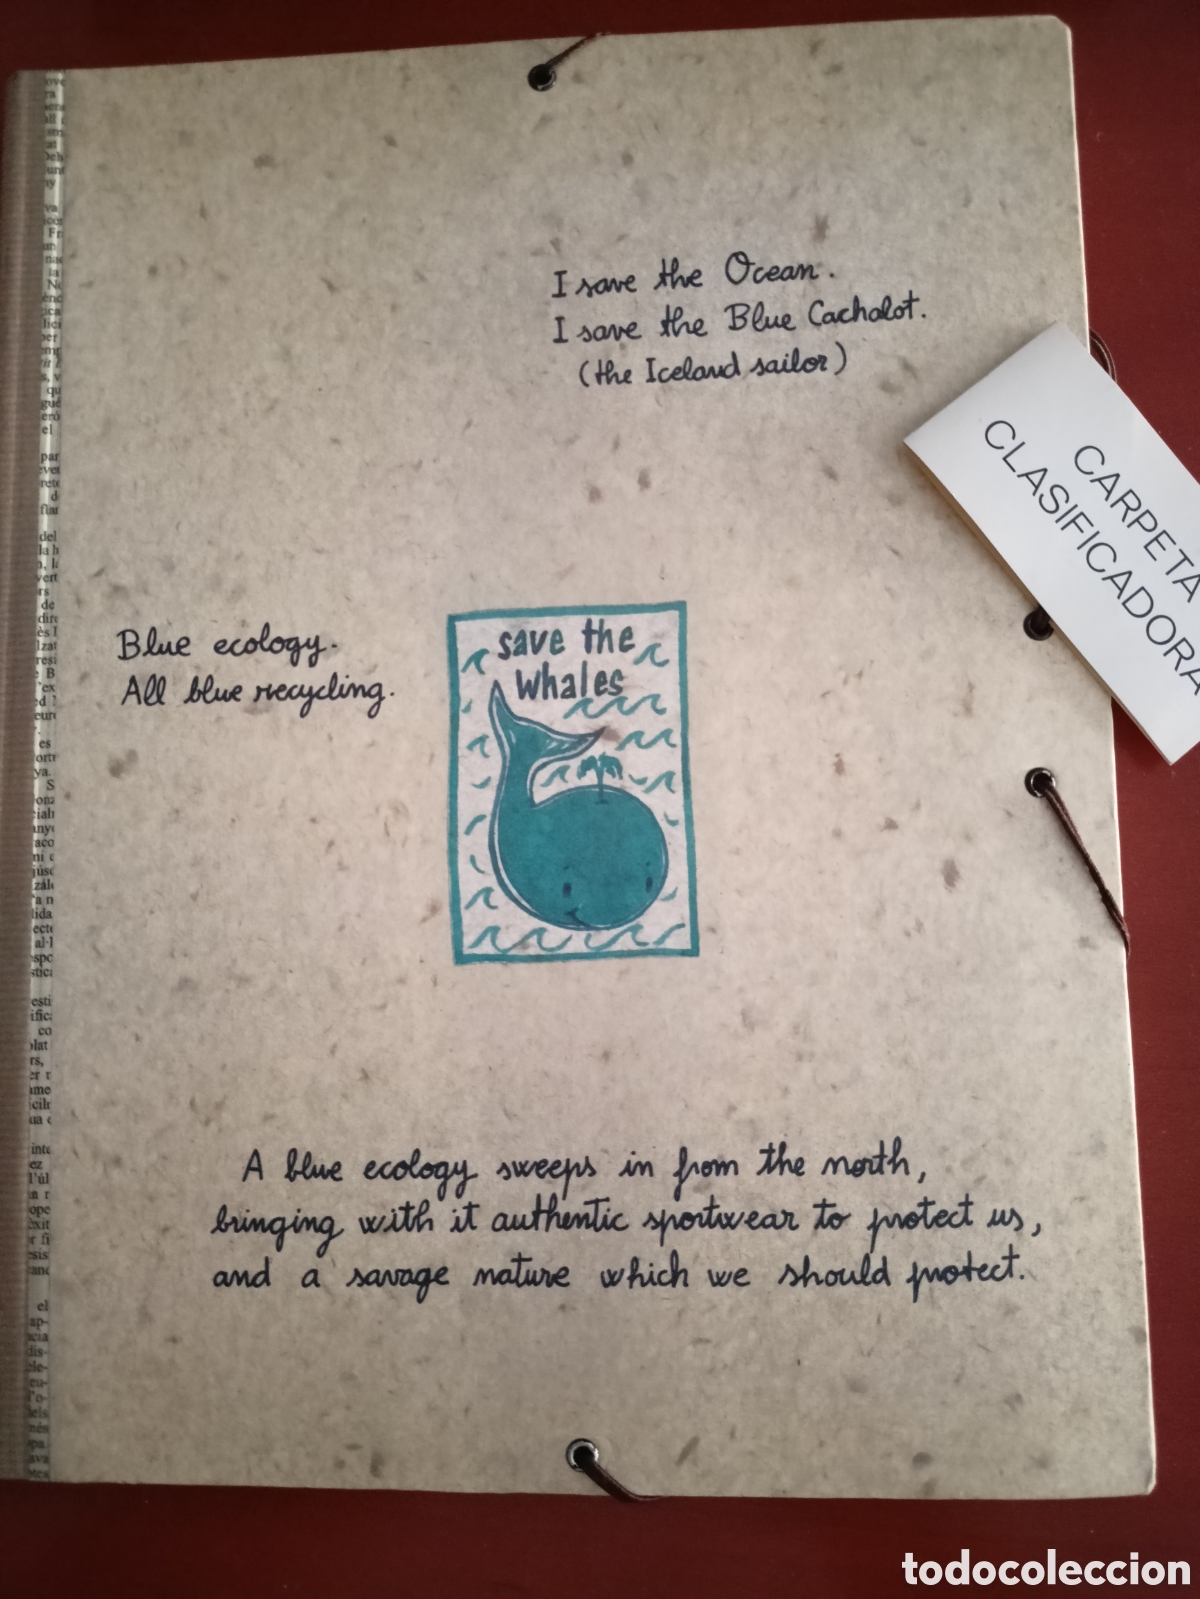 I save the Ocean.
I save the Blue Cachalot.
(the Iceland sailor)
CARPETA
CLASIFICADORA
Blue ecology.
All blue recycling.
save the
whales
A blue ecology sweeps in from the north,
bringing with it authentic sportwear to protect us,
and a savage nature which we should protect.
todocoleccion